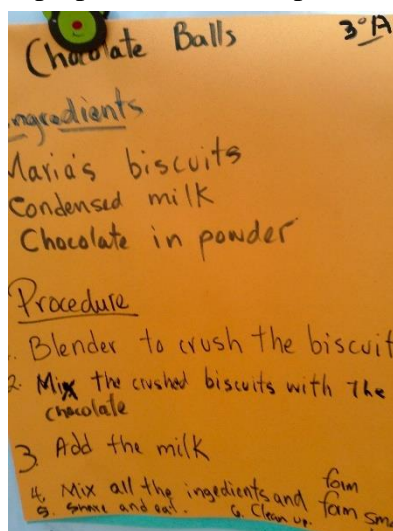 Chocolate Balls
3°A
Ingredients
Maria's biscuits
Condensed milk
Chocolate in powder
Procedure
Blender to crush the biscuit
2. Mix the crushed biscuits with the
chocolate
3. Add the milk
form
4. Mix all the ingedients and fom
5. share and eat. 6. Clean up.